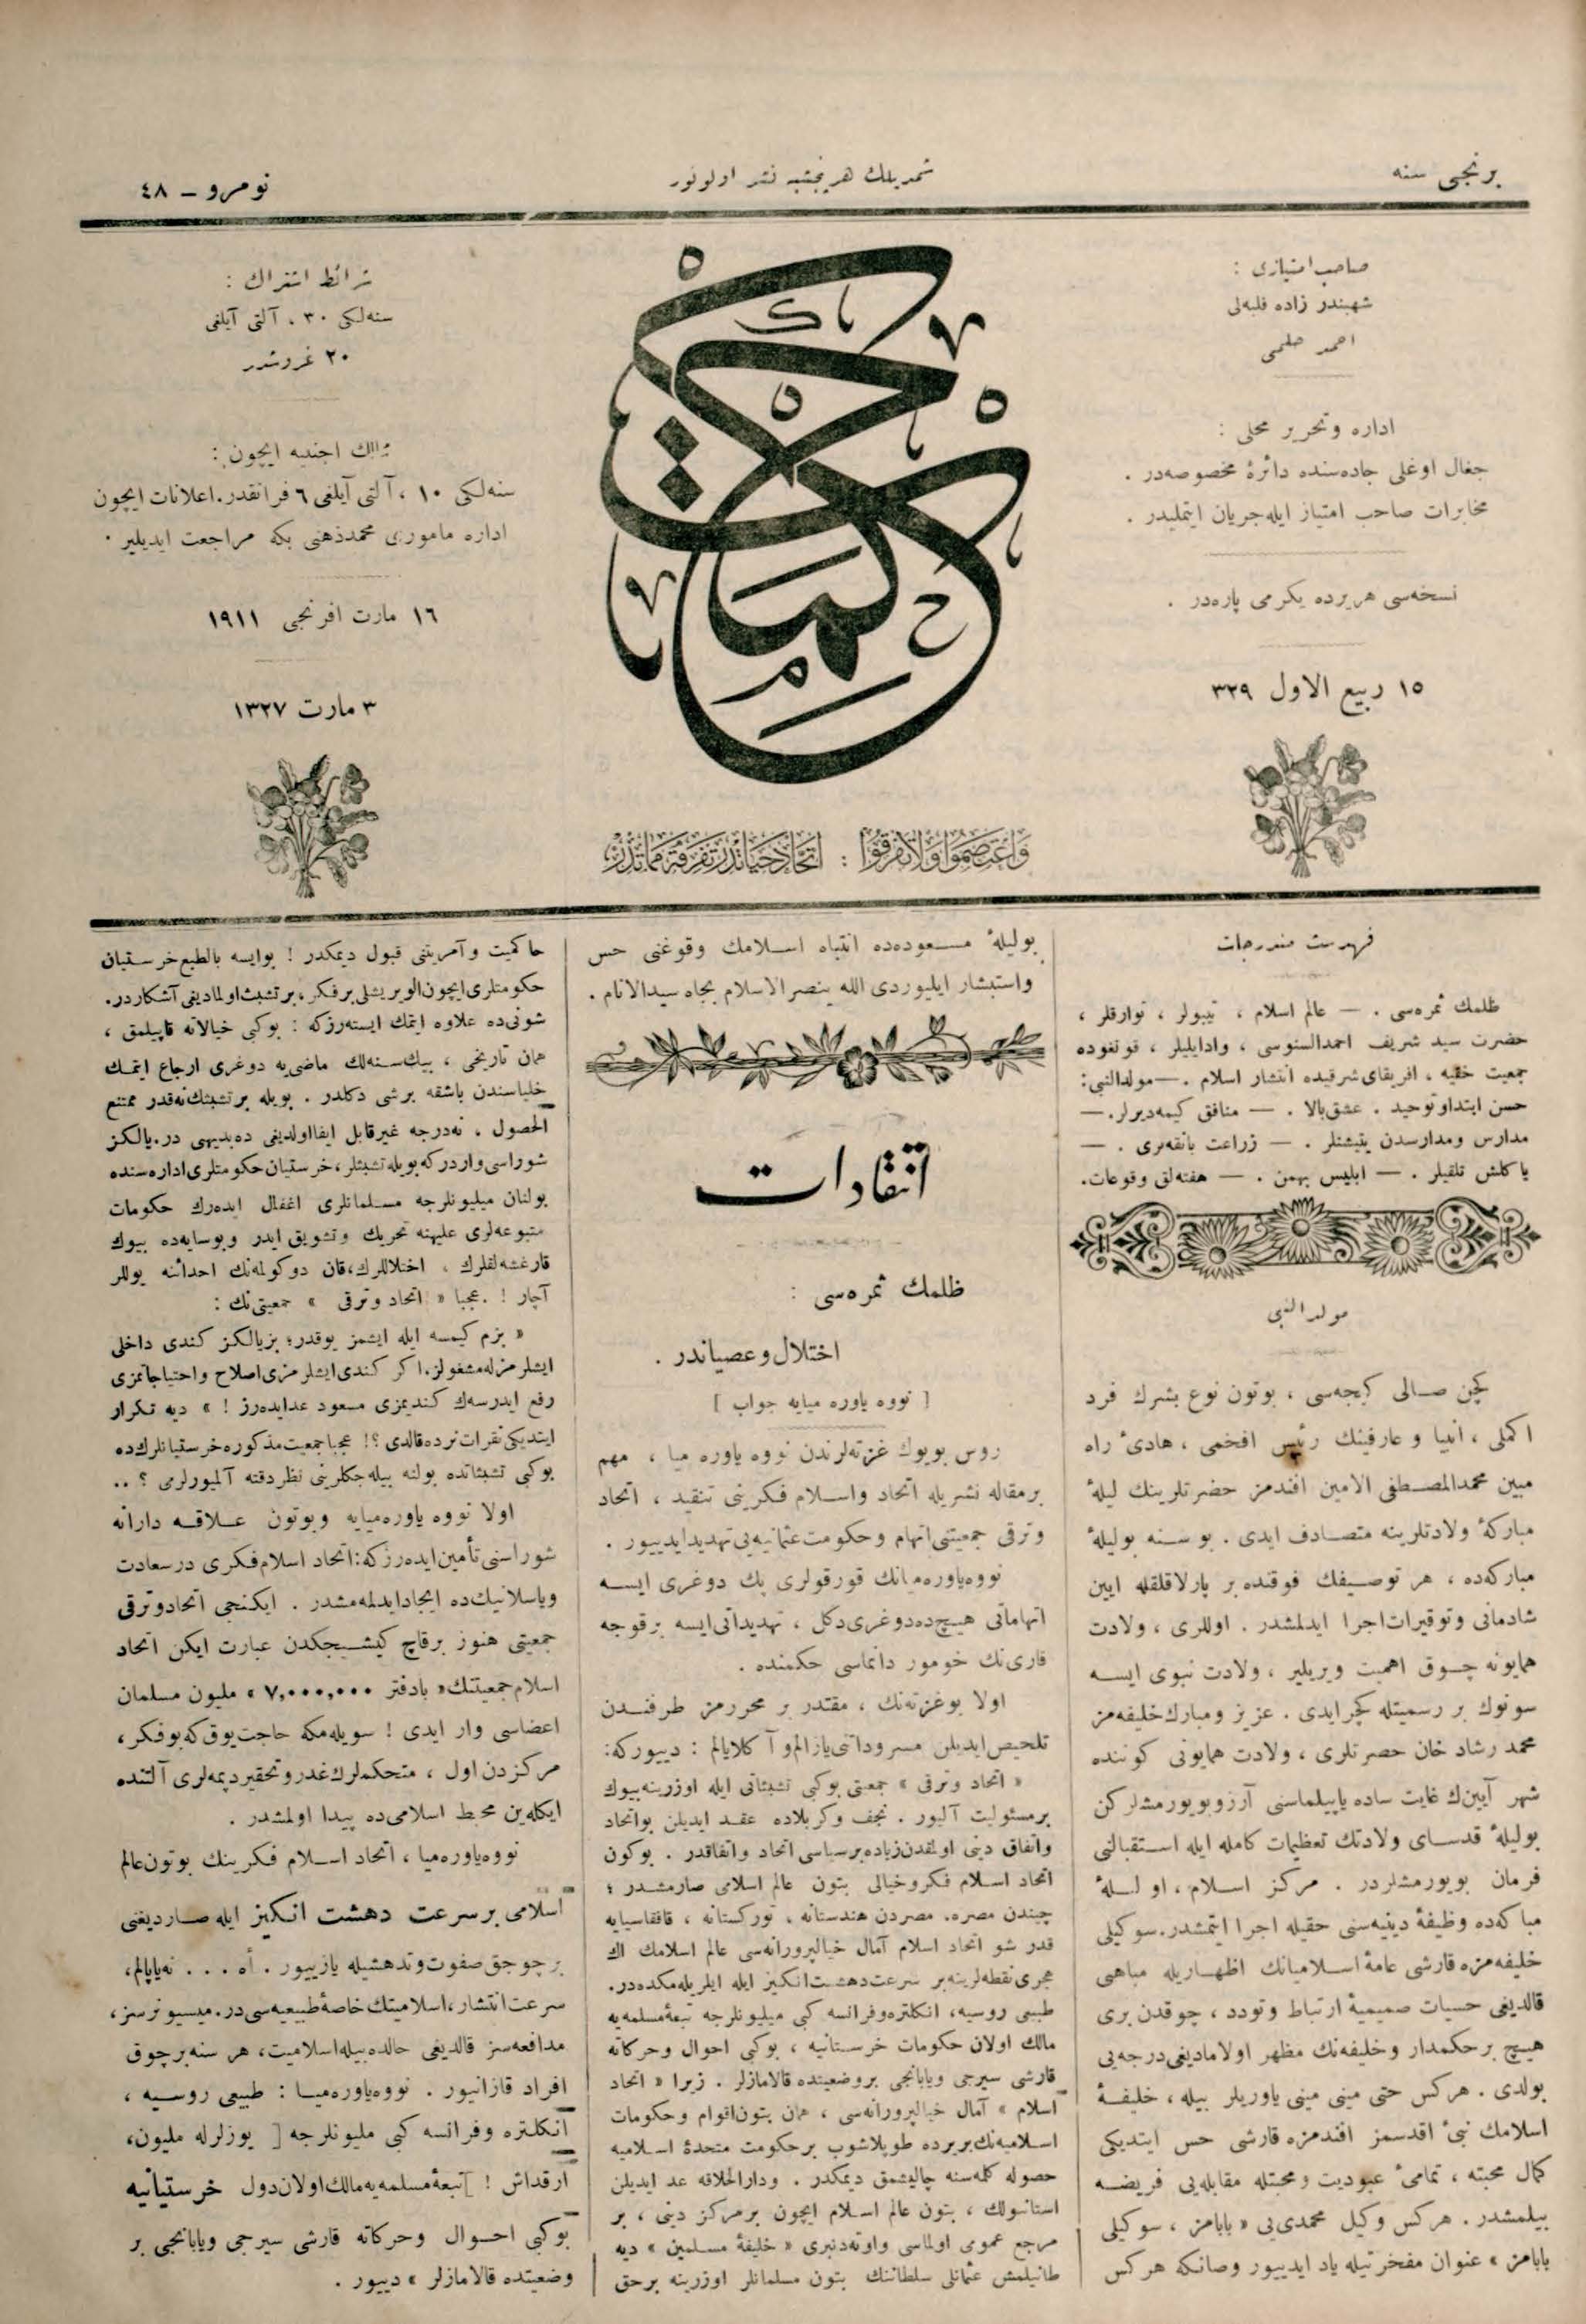 برنجی سنه
شمدیلك هر پنجشنبه نشر اولونور
نومرو ـ ٤٨
صاحب امتیازی :
شهبندر زاده فلبه‌لی
احمد حلمی
اداره و تحریر محلی :
جغال اوغلی جاده‌سنده دائرهٔ مخصوصه‌در .
مخابرات صاحب امتیاز ایله جریان ایتملیدر .
نسخه‌سی هر یرده یكرمی پاره‌در .
١٥ ربیع الاول ٣٢٩
حكمت
وَاعْتَصِمُوا وَلَا تَفَرَّقُوا : اتحاد حیاتدر تفرقه مماتدر
شرائط اشتراك :
سنه‌لكی ٣٠ ، آلتی آیلغی
٢٠ غروشدر
ممالك اجنبیه ایچون :
سنه‌لكی ١٠ ، آلتی آیلغی ٦ فرانقدر . اعلانات ایچون
اداره ماموری محمد ذهنی بكه مراجعت ایدیلیر .
١٦ مارت افرنجی ١٩١١
٣ مارت ١٣٢٧
فهرست مندرجات
ظلمك ثمره‌سی . — عالم اسلام ، تیبولر ، توارقلر ،
حضرت سید شریف احمد السنوسی ، وادایلیلر ، قونغوده
جمعیت خفیه ، افریقای شرقیده انتشار اسلام . — مولد النبی :
حسن ابتدا و توحید . عشق بالا . — منافق كیمه دیرلر . —
مدارس و مدارسدن یتیشنلر . — زراعت بانقه‌لری . —
یاكلش تلقیلر . — ابلیس بهمن . — هفته‌لق وقوعات .
مولد النبی
كچن صالی كیجه‌سی ، بوتون نوع بشرك فرد
اكملی ، انبیا و عارفینك رئیس افخمی ، هادیٔ راه
مبین محمد المصطفی الامین افندمز حضرتلرینك لیلهٔ
مباركهٔ ولادتلرینه متصادف ایدی . بو سنه بو لیلهٔ
مباركه‌ده ، هر توصیفك فوقنده بر پارلاقلقله ایین
شادمانی و توقیرات اجرا ایدلمشدر . اوللری ، ولادت
همایونه چوق اهمیت ویریلیر ، ولادت نبوی ایسه
سونوك بر رسمیتله كچر ایدی . عزیز و مبارك خلیفه‌مز
محمد رشاد خان حضرتلری ، ولادت همایونی كوننده
شهر آیین‌ك غایت ساده یاپیلماسنی آرزو بویورمشلركن
بو لیلهٔ قدسای ولادتك تعظیمات كامله ایله استقبالنی
فرمان بویورمشلردر . مركز اسلام ، او لیلهٔ
مباركه‌ده وظیفهٔ دینیه‌سنی حقیله اجرا ایتمشدر . سوكیلی
خلیفه‌مزه قارشی عامهٔ اسلامیانك اظهاریله مباهی
قالدیغی حسیات صمیمیهٔ ارتباط و تودد ، چوقدن بری
هیچ بر حكمدار و خلیفه‌نك مظهر اولامادیغی درجه‌یی
بولدی . هركس حتی مینی مینی یاوریلر بیله ، خلیفهٔ
اسلامك نبیٔ اقدسمز افندمزه قارشی حس ایتدیكی
كمال محبته ، تمامیٔ عبودیت و محبتله مقابله‌یی فریضه
بیلمشدر . هركس وكیل محمدی‌یی « بابامز ، سوكیلی
بابامز » عنوان مفخرتیله یاد ایدییور وصانكه هركس
بو لیلهٔ مسعوده‌ده انتباه اسلامك وقوغنی حس
واستبشار ایلیوردی الله ینصر الاسلام بجاه سید الانام .
انتقادات
ظلمك ثمره‌سی :
اختلال و عصیاندر .
[ نووه یاوره میایه جواب ]
روس بویوك غزته‌لرندن نووه یاوره میا ، مهم
بر مقاله نشریله اتحاد واسلام فكرینی تنقید ، اتحاد
وترقی جمعیتنی اتهام وحكومت عثمانیه‌یی تهدید ایدییور .
نووه یاوره میانك قورقولری پك دوغری ایسه
اتهاماتی هیچ‌ده دوغری دكل ، تهدیداتی ایسه بر قوجه
قاری‌نك خومور دانماسی حكمنده .
اولا بو غزته‌نك ، مقتدر بر محررمز طرفندن
تلخیص ایدیلن مسروداتنی یازالم و آكلایالم : دییوركه :
« اتحاد وترقی » جمعیتی بوكبی تشبثاتی ایله اوزرینه بیوك
بر مسئولیت آلیور . نجف وكربلاده عقد ایدیلن بو اتحاد
واتفاق دینی اولمقدن زیاده بر سیاسی اتحاد واتفاقدر . بوكون
اتحاد اسلام فكر وخیالی بتون عالم اسلامی صارمشدر ؛
چیندن مصره ، مصردن هندستانه ، توركستانه ، قافقاسیایه
قدر شو اتحاد اسلام آمال خیالپرورانه‌سی عالم اسلامك اك
هجری نقطه‌لرینه بر سرعت دهشت‌انكیز ایله ایلریله‌مكده‌در .
طبیعی روسیه ، انكلتره وفرانسه كبی میلیونلرجه تبعهٔ مسلمه‌یه
مالك اولان حكومات خرستانیه ، بوكبی احوال وحركاته
قارشی سیرجی ویابانجی بر وضعیتده قالامازلر . زیرا « اتحاد
اسلام » آمال خیالپرورانه‌سی ، همان بتون اقوام وحكومات
اسلامیه‌نك بربرده طوپلاشوب بر حكومت متحدهٔ اسلامیه
حصوله كلمه‌سنه چالیشمق دیمكدر . ودار الخلافه عد ایدیلن
استانبولك ، بتون عالم اسلام ایچون بر مركز دینی ، بر
مرجع عمومی اولماسی واوته‌دنبری « خلیفهٔ مسلمین » دیه
طانیلمش عثمانلی سلطاننك بتون مسلمانلر اوزرینه بر حق
حاكمیت و آمریتنی قبول دیمكدر ! بوایسه بالطبع خرستیان
حكومتلری ایچون الویریشلی بر فكر ، بر تشبث اولمادیغی آشكاردر .
شونی‌ده علاوه ایتمك ایسته‌رزكه : بوكبی خیالاته قاپیلمق ،
همان تاریخی ، بیك سنه‌لك ماضی‌یه دوغری ارجاع ایتمك
خلیاسندن باشقه بر شی دكلدر . بویله بر تشبثك نه‌قدر ممتنع
الحصول ، نه‌درجه غیر قابل ایفا اولدیغی ده بدیهی در . یالكز
شوراسی واردركه بویله تشبثلر ، خرستیان حكومتلری اداره‌سنده
بولنان میلیونلرجه مسلمانلری اغفال ایده‌رك حكومات
متبوعه‌لری علیهنه تحریك وتشویق ایدر وبوسایه‌ده بیوك
قارغشه‌لقلرك ، اختلاللرك ، قان دوكولمه‌نك احداثنه یوللر
آچار ! . عجبا « اتحاد وترقی » جمعیتی‌نك :
« بزم كیمسه ایله ایشمز یوقدر ؛ بز یالكز كندی داخلی
ایشلرمزله مشغولز . اكر كندی ایشلرمزی اصلاح واحتیاجاتمزی
رفع ایدرسه‌ك كندیمزی مسعود عد ایده‌رز ! » دیه تكرار
ایتدیكی نقرات نرده قالدی ؟! عجبا جمعیت مذكوره خرستیانلرك‌ده
بوكبی تشبثاتده بولنه بیله‌جكلرینی نظر دقته آلمیورلرمی ؟ ..
اولا نووه یاوره میایه وبوتون علاقه دارانه
شوراسنی تأمین ایده‌رزكه : اتحاد اسلام فكری درسعادت
ویاسلانیك‌ده ایجاد ایدلمه‌مشدر . ایكنجی اتحاد وترقی
جمعیتی هنوز برقاچ كیشیجكدن عبارت ایكن اتحاد
اسلام جمعیتنك « بادفتر ٧,٠٠٠,٠٠٠ » ملیون مسلمان
اعضاسی وار ایدی ! سویله‌مكه حاجت یوق كه بو فكر ،
مركزدن اول ، متحكملرك غدر وتحقیر دیمه‌لری آلتنده
ایكله‌ین محیط اسلامی‌ده پیدا اولمشدر .
نووه یاوره میا ، اتحاد اسلام فكرینك بوتون عالم
اسلامی بر سرعت دهشت انكیز ایله صاردیغنی
بر چوجق صفوت وتدهشیله یازییور . آه . . . نه یاپالم ،
سرعت انتشار ، اسلامیتك خاصهٔ طبیعیه‌سی‌در . میسیونرسز ،
مدافعه‌سز قالدیغی حالده بیله اسلامیت ، هر سنه بر چوق
افراد قازانیور . نووه یاوره میا : طبیعی روسیه ،
انكلتره وفرانسه كبی ملیونلرجه [ یوزلرله ملیون ،
ارقداش ! ] تبعهٔ مسلمه‌یه مالك اولان دول خرستیانیه
بوكبی احوال وحركاته قارشی سیرجی ویابانجی بر
وضعیتده قالامازلر » دییور .